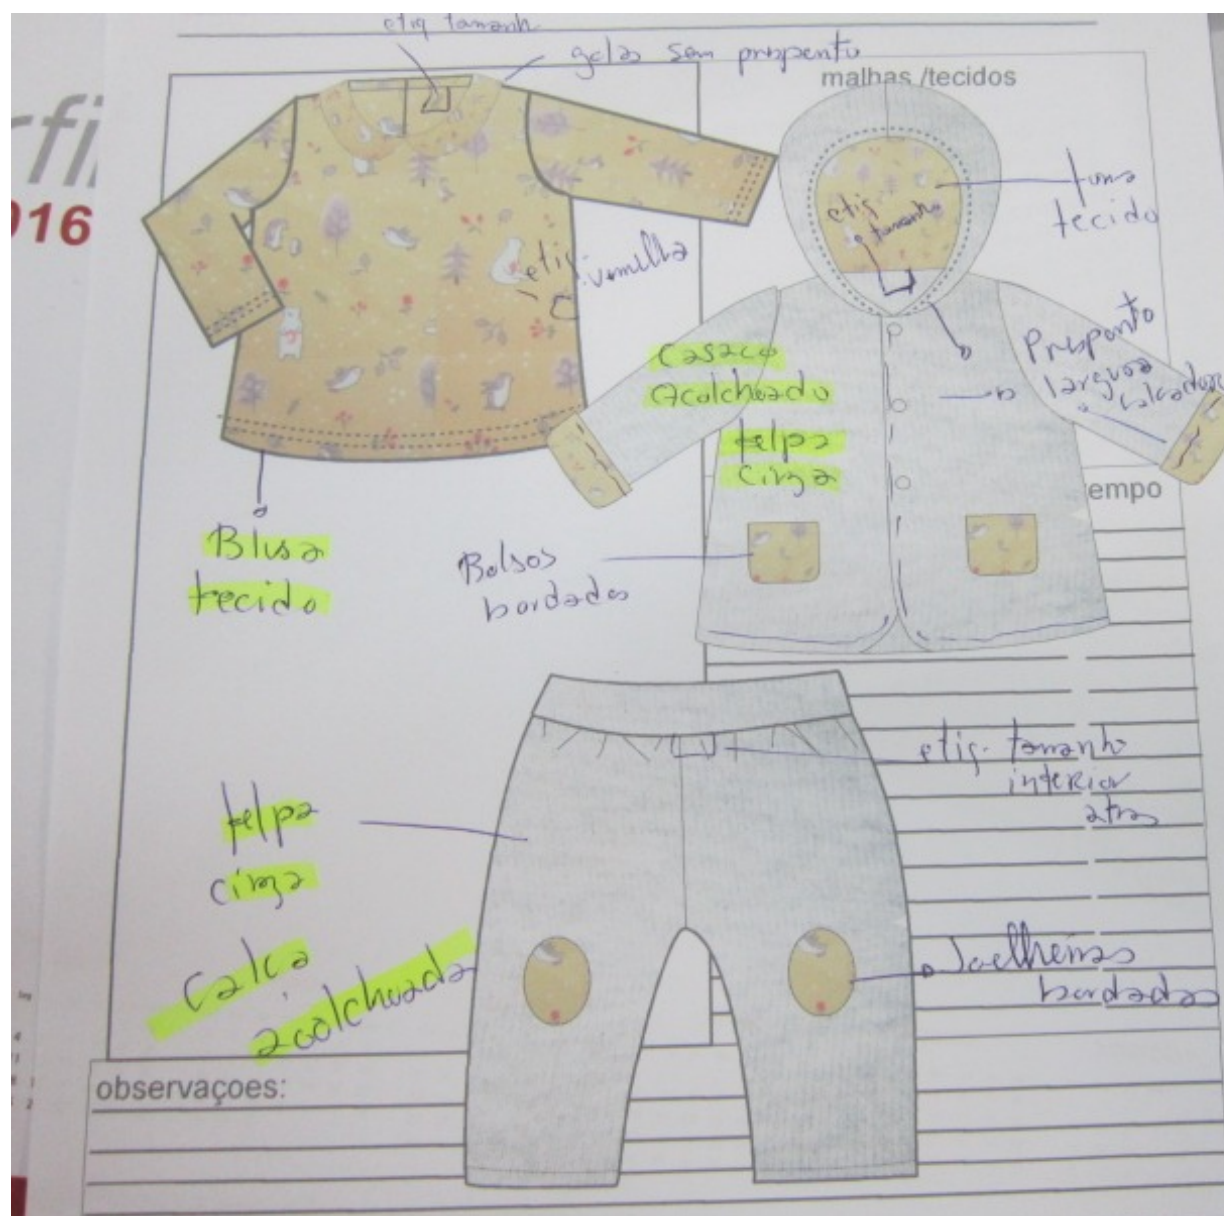 etiq tamanh
gola sem pesponto
malhas /tecidos
rfi
016
forro
tecido
etiq
tamanho
etiq.
vermelha
Pesponto
largura
calcador
Casaco
acolchoado
felpa
cinza
empo
Blusa
tecido
Bolsos
bordados
etiq. tamanho
interior
atras
felpa
cinza
Calca
acolchoada
Joelheiras
bordadas
observaçoes: